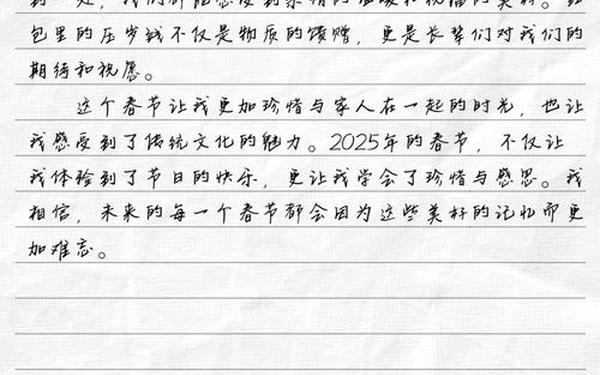 到一起，我们都能感受到亲情的温暖和祝福的美好。红
包里的压岁钱不仅是物质的馈赠，更是长辈们对我们的
期待和祝愿。
这个春节让我更加珍惜与家人在一起的时光，也让
我感受到了传统文化的魅力。2025年的春节，不仅让
我体验到了节日的快乐，更让我学会了珍惜与感恩。我
相信，未来的每一个春节都会因为这些美好的记忆而更
加难忘。